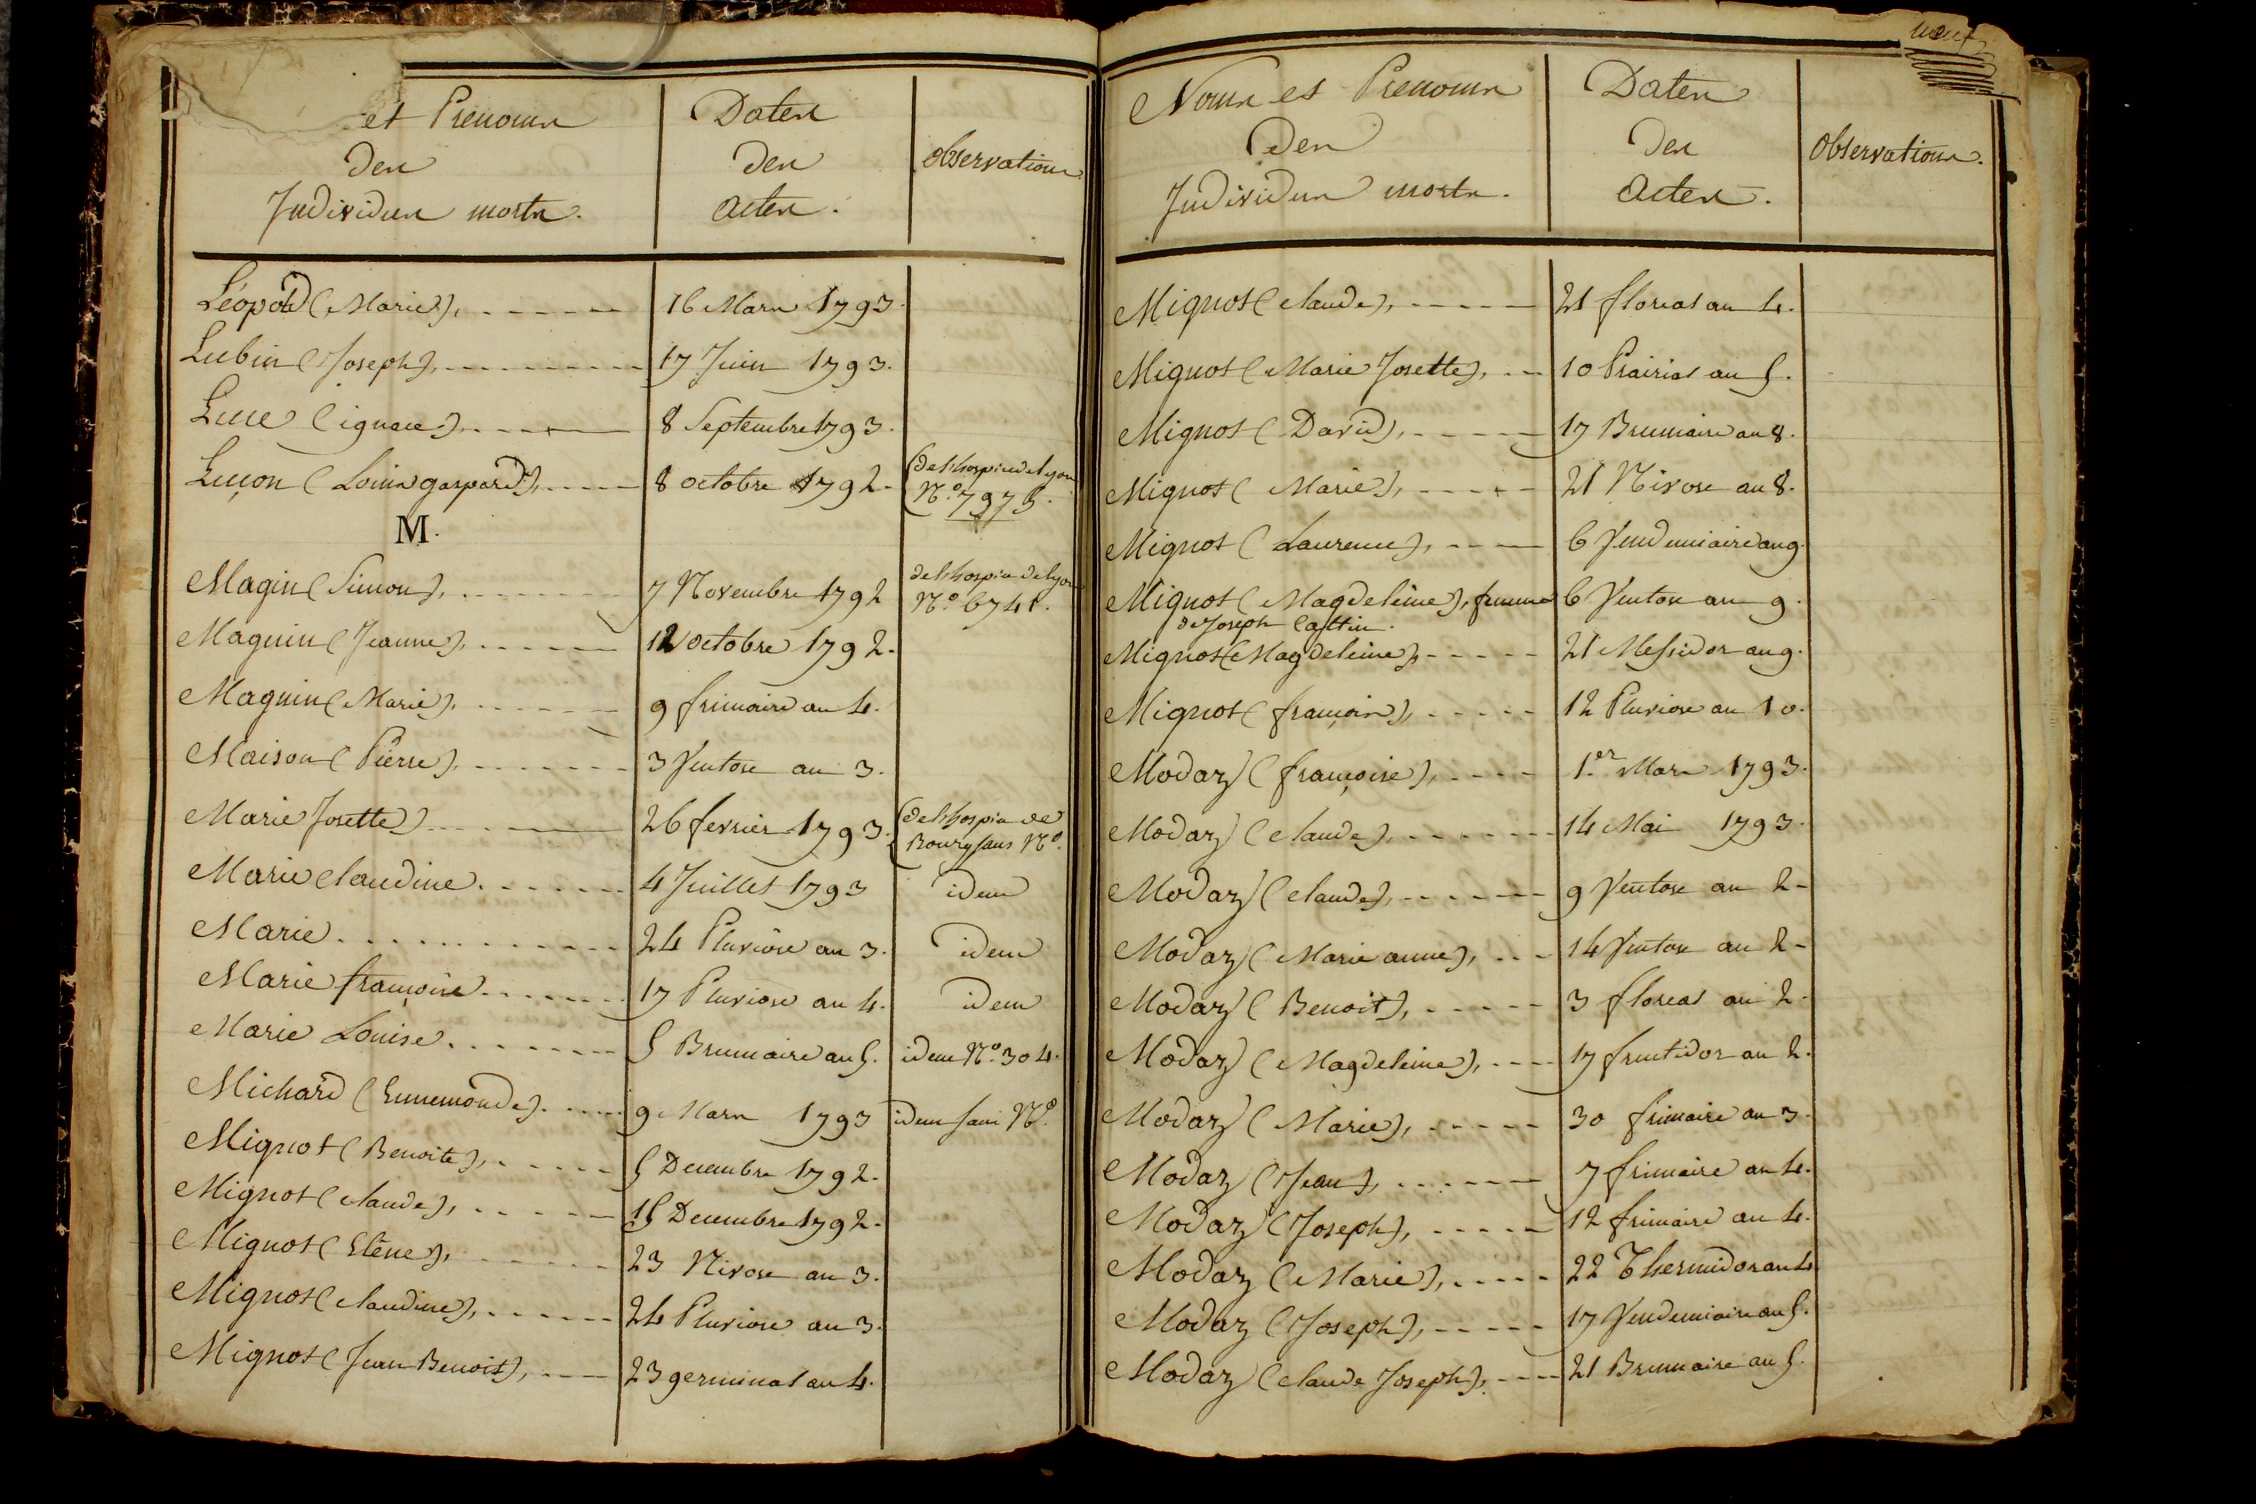 et Prenoms
des
Individus morts.
Dates
des
actes.
observations
Léopold (Marie), 16 Mars 1793.
Lubin (Joseph), 17 Juin 1793.
Luce (ignace), 8 Septembre 1793.
Luçon (Louis gaspard), 8 octobre 1792. (de l'hospice de lyon
N.o 7975.
M.
Magin (Simon), 7 Novembre 1792 de l'hospice de lyon
N.o 6741.
Maguin (Jeanne), 12 octobre 1792.
Maguin (Marie), 9 frimaire an 4.
Maison (Pierre), 3 Ventose an 3.
Marie Josette 26 fevrier 1793. (de l'hospice de
Bourg sans N.o
Marie Claudine 4 Juillet 1793 idem
Marie 24 Pluviôse an 3. idem
Marie françoise 17 Pluviose an 4. idem
Marie Louise 5 Brumaire an 5. idem N.o 304.
Michard (Ennemonde) 9 Mars 1793 idem sans N.o
Mignot (Benoite), 5 Decembre 1792.
Mignot (claude), 15 Decembre 1792.
Mignot (Elêne), 23 Nivose an 3.
Mignot (claudine), 24 Pluviose an 3.
Mignot (Jean Benoit), 23 germinal an 4.
neuf
Noms et Prenoms
des
Individus morts.
Dates
des
actes.
Observations.
Mignot (claude), 21 floreal an 4.
Mignot (Marie Josette), 10 Prairial an 5.
Mignot (David), 17 Brumaire an 8.
Mignot (Marie), 21 Nivose an 8.
Mignot (Laurence), 6 Vendemiaire an 9.
Mignot (Magdeleine), femme 6 Ventose an 9.
de Joseph Cattin.
Mignot (Magdeleine), 21 Messidor an 9.
Mignot (françois), 12 Pluviose an 10.
Modaz (françoise), 1.er Mars 1793.
Modaz (claude), 14 Mai 1793.
Modaz (claude), 9 Ventose an 2.
Modaz (Marie anne), 14 Ventose an 2.
Modaz (Benoit), 3 floreal an 2.
Modaz (Magdeleine), 17 fructidor an 2.
Modaz (Marie), 30 frimaire an 3.
Modaz (Jean), 7 frimaire an 4.
Modaz (Joseph), 12 frimaire an 4.
Modaz (Marie), 22 Thermidor an 4
Modaz (Joseph), 17 Vendemiaire an 5.
Modaz (claude Joseph), 21 Brumaire an 5.